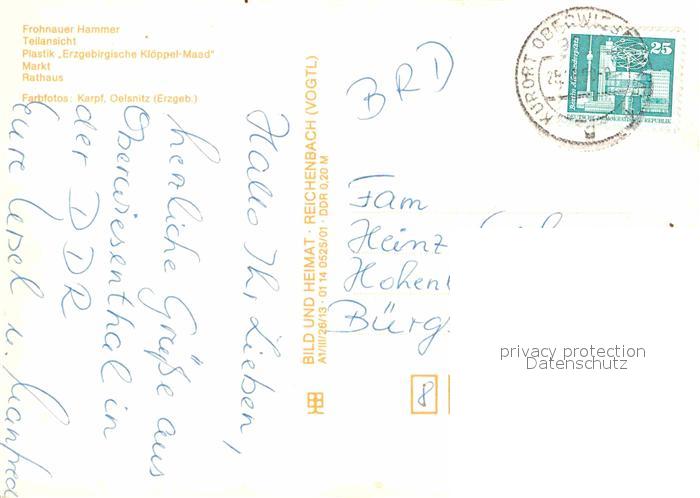 Frohnauer Hammer
Teilansicht
Plastik „Erzgebirgische Klöppel-Maad"
Markt
Rathaus
Farbfotos: Karpf, Oelsnitz (Erzgeb.)
Hallo Ihr Lieben,
herzliche Grüße aus
Oberwiesenthal in
der DDR
Eure Ursel u. Manfred
BILD UND HEIMAT · REICHENBACH (VOGTL)
A1/III/26/13 · 01 14 0525/01 · DDR 0,20 M
BRD
Fam
Heinz
Hohen
Bürg
8
KURORT OBERWIESENTHAL
25
DEUTSCHE DEMOKRATISCHE REPUBLIK
privacy protection
Datenschutz